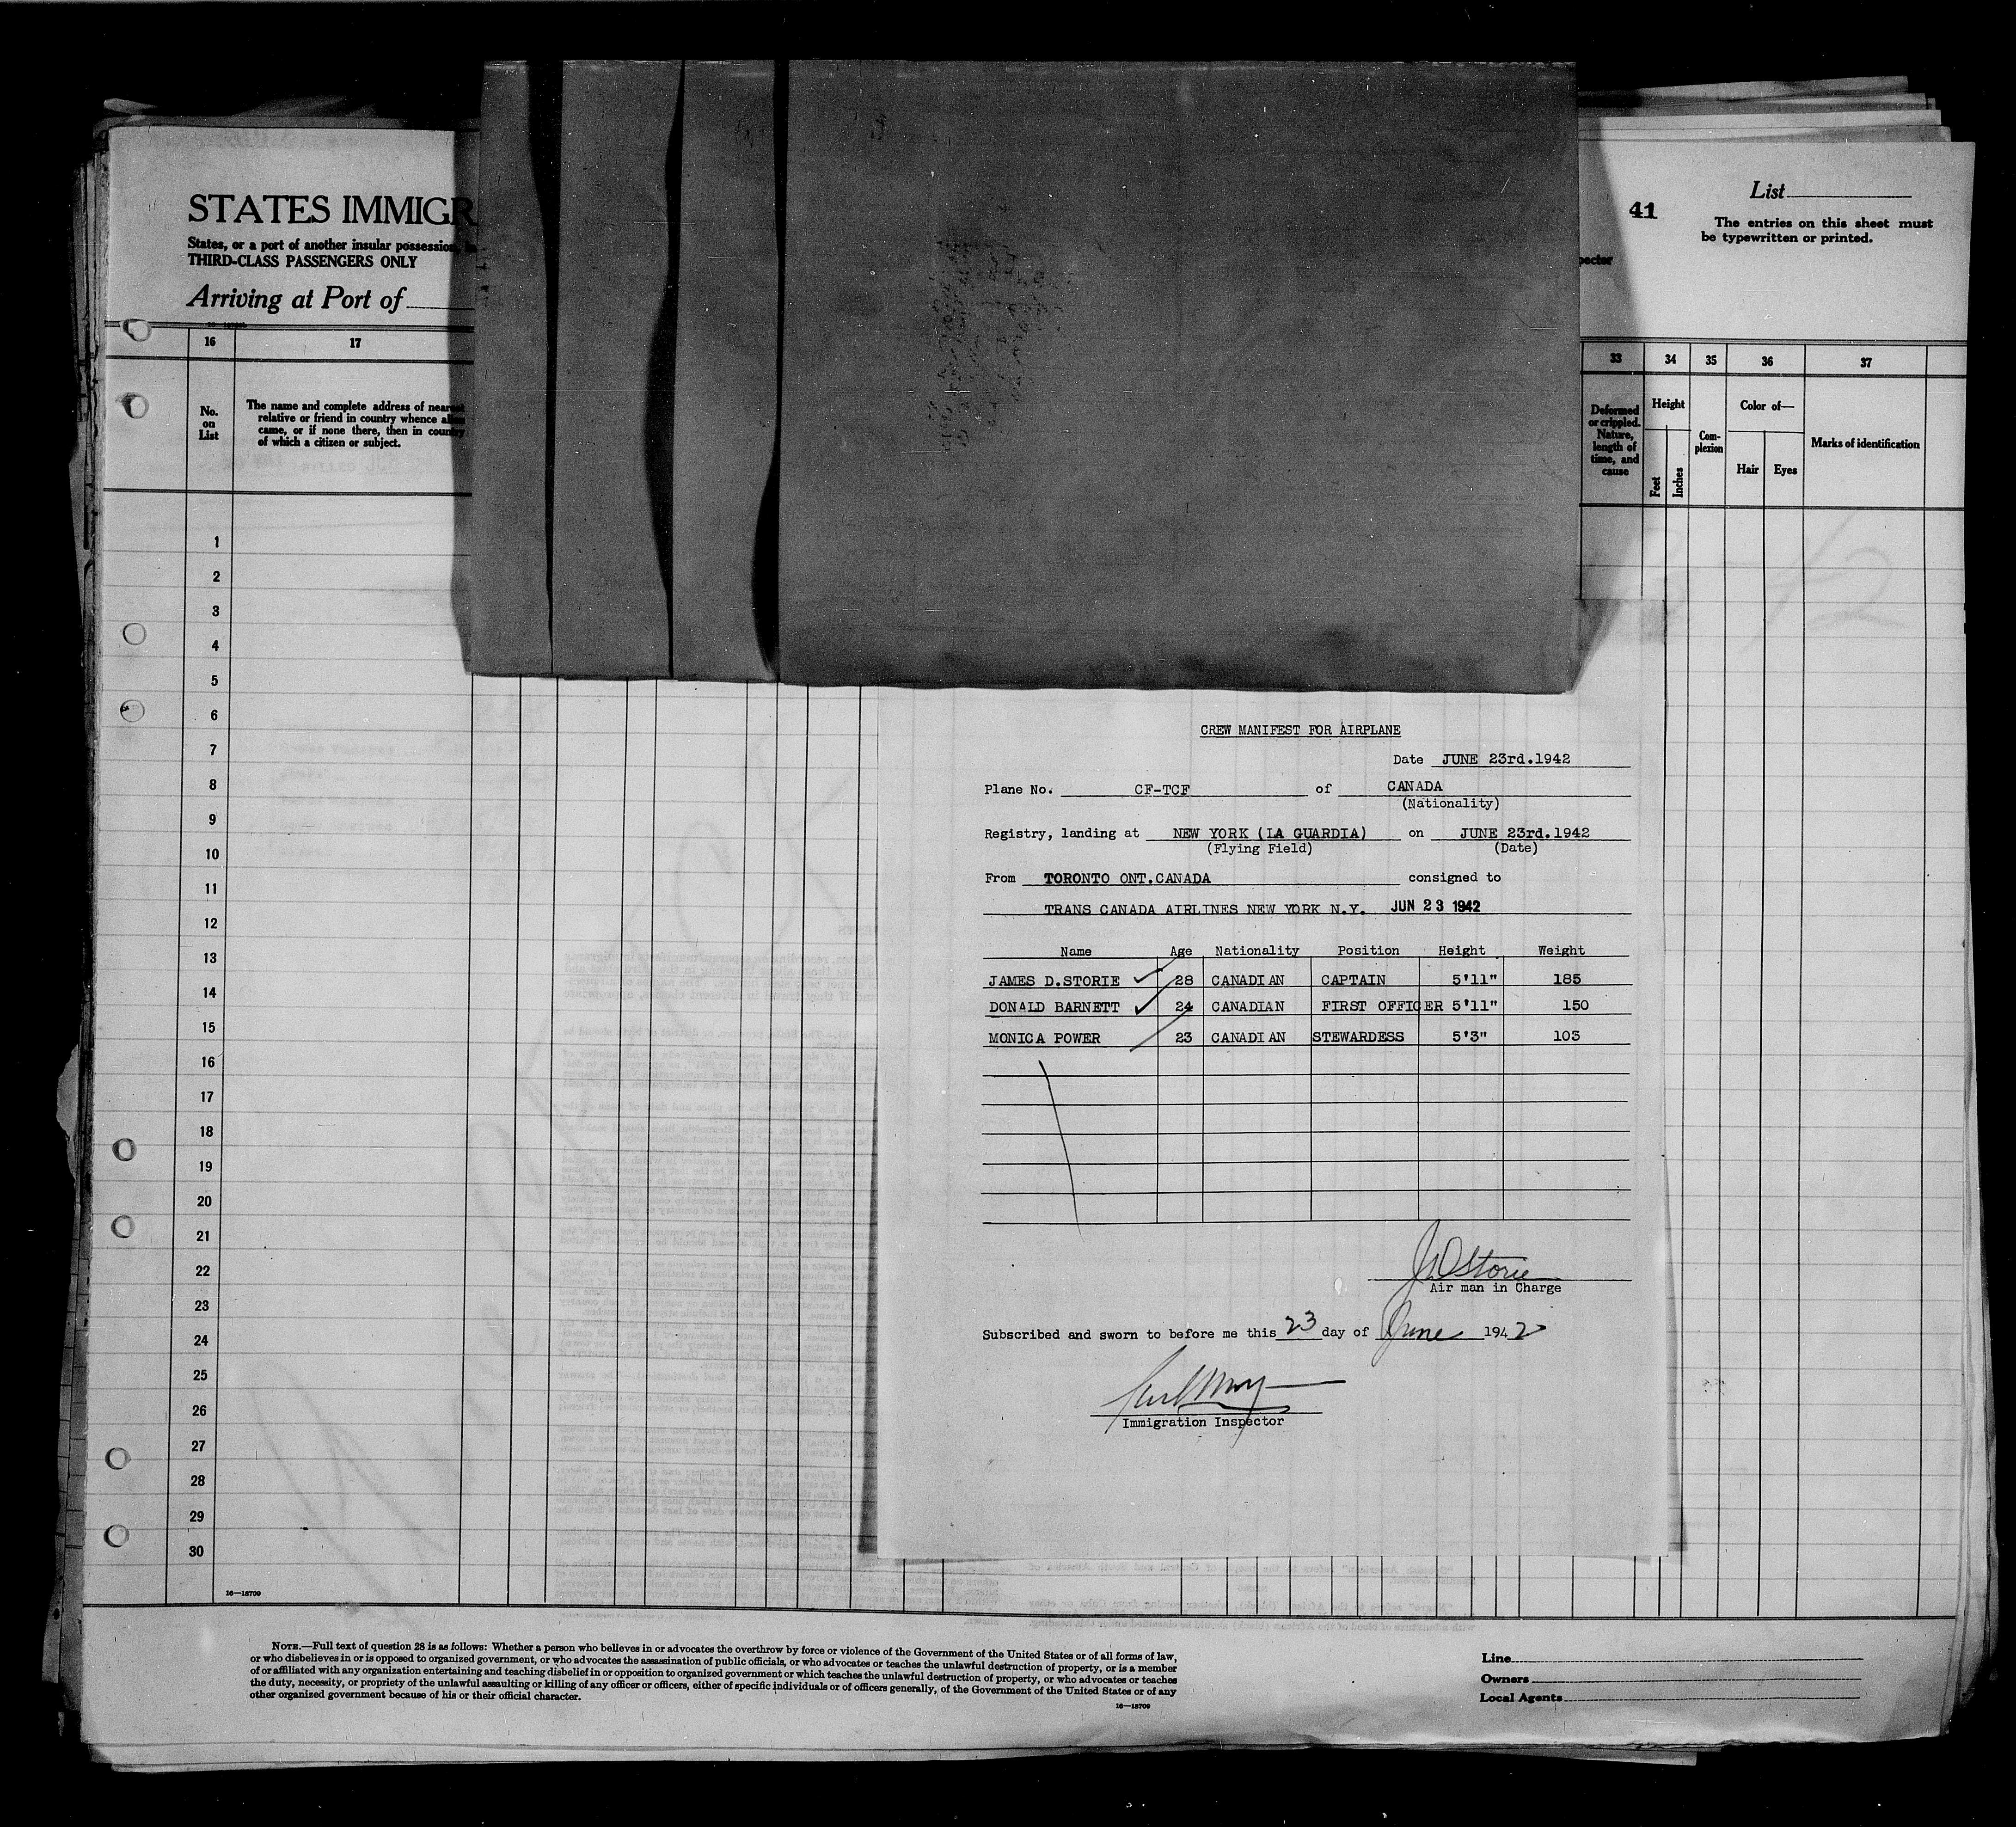 STATES IMMIGR
States, or a port of another insular possession,
THIRD-CLASS PASSENGERS ONLY
Arriving at Port of
pector
41
List
The entries on this sheet must
be typewritten or printed.
16 17
No.
on
List
The name and complete address of nearest
relative or friend in country whence alien
came, or if none there, then in country
of which a citizen or subject.
33 34 35 36 37
Deformed
or crippled.
Nature,
length of
time, and
cause
Height
Feet
Inches
Com-
plexion
Color of—
Hair Eyes
Marks of identification
1
2
3
4
5
6
7
8
9
10
11
12
13
14
15
16
17
18
19
20
21
22
23
24
25
26
27
28
29
30
16—18709
CREW MANIFEST FOR AIRPLANE
Date JUNE 23rd.1942
Plane No. CF-TCF of CANADA
(Nationality)
Registry, landing at NEW YORK (LA GUARDIA) on JUNE 23rd.1942
(Flying Field) (Date)
From TORONTO ONT.CANADA consigned to
TRANS CANADA AIRLINES NEW YORK N.Y. JUN 23 1942
Name Age Nationality Position Height Weight
JAMES D.STORIE 28 CANADIAN CAPTAIN 5'11" 185
DONALD BARNETT 24 CANADIAN FIRST OFFICER 5'11" 150
MONICA POWER 23 CANADIAN STEWARDESS 5'3" 103
JDStorie
Air man in Charge
Subscribed and sworn to before me this 23 day of June 1942
Immigration Inspector
NOTE.—Full text of question 28 is as follows: Whether a person who believes in or advocates the overthrow by force or violence of the Government of the United States or of all forms of law,
or who disbelieves in or is opposed to organized government, or who advocates the assassination of public officials, or who advocates or teaches the unlawful destruction of property, or is a member
of or affiliated with any organization entertaining and teaching disbelief in or opposition to organized government or which teaches the unlawful destruction of property, or who advocates or teaches
the duty, necessity, or propriety of the unlawful assaulting or killing of any officer or officers, either of specific individuals or of officers generally, of the Government of the United States or of any
other organized government because of his or their official character.
16—18709
Line
Owners
Local Agents